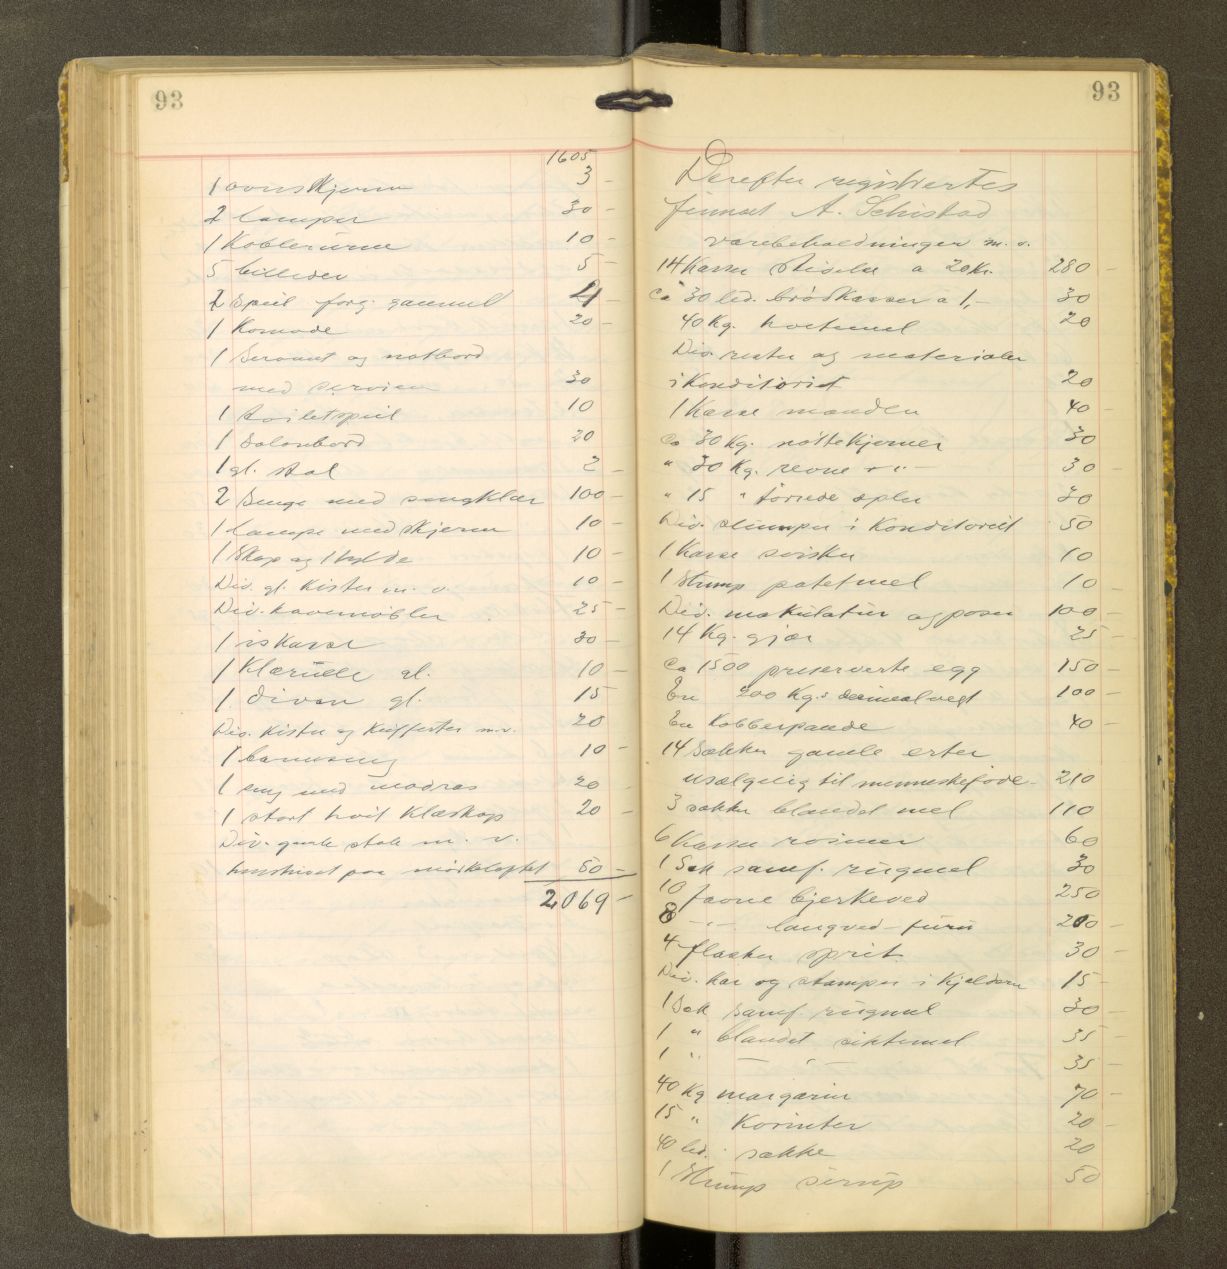 93
1605
1 ovnskjerm 3 -
2 lamper 30 -
1 Koblerurne 10 -
5 billeder 5 -
2 speil forg. gammel 4 -
1 Komode 20 -
1 Servant og natbord
med servise 30
1 toiletspeil 10
1 Salonbord 20
1 gl. stol 2 -
2 Senge med sengklær 100 -
1 lampe med skjerm 10 -
1 Skap og 1 hylde 10 -
Div. gl. Kister m. v. 10 -
Div. havemøbler 25 -
1 iskasse 30 -
1 Klærulle gl. 10 -
1 divan gl. 15
Div. Kister og Kufferter m.v. 20
1 barneseng 10 -
1 seng med madras 20
1 stort hvit Klæskap 20 -
Div. gamle stole m. v.
henstuet paa mørkeloftet 50 -
2,069 -
93
Derefter registrertes
firmaet A. Schistad
varebeholdninger m. v.
14 Kasser stiselse a 20 Kr. 280 -
ca 30 led. brødkasser a 1,- 30
40 Kg. hvetemel 20
Div. rester og materialer
i Konditoriet 20
1 Kasse mandler 40 -
ca 30 Kg. nøttekjerner 30
" 30 Kg. revne -"- 30 -
" 15 " tørrede epler 30
Div. slumper i Konditoriet 50
1 Kasse svisker 10
1 Slump potetmel 10 -
Div. makulatur og poser 100 -
14 Kg. gjær 25 -
ca 1500 preserverte egg 150 -
En 200 Kg.s decimalvegt 100 -
En Kobberpande 40 -
14 Sækker gamle erter
usælgelig til menneskeføde - 210
3 sækker blandet mel 110
6 Kasser rosiner 60
1 Sek samf. rugmel 30
10 favne bjerkeved 250
8 -"- langved - furu 200 -
4 flasker sprit 30 -
Div. kar og stamper i Kjelderen 15 -
1 Sek samf. rugmel 30 -
1 " blandet siktemel 35 -
1 " — " — 35 -
40 Kg margarin 70 -
15 " Korinter 20 -
40 led. sække 20
1 Slump sirup 50